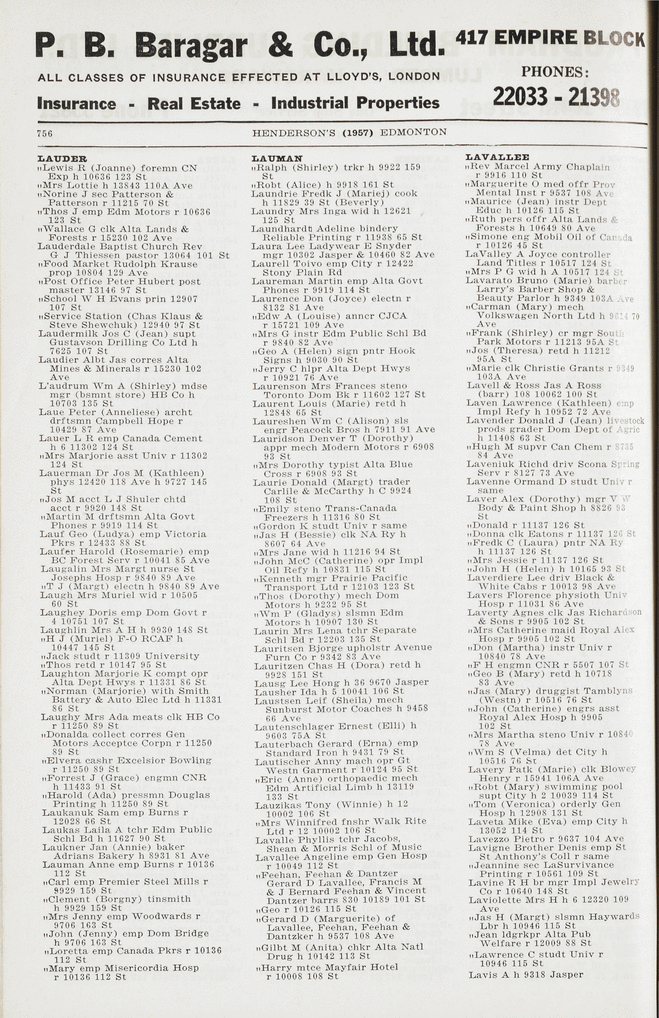 P. B. Baragar & Co., Ltd. 417 EMPIRE BLOCK
ALL CLASSES OF INSURANCE EFFECTED AT LLOYD'S, LONDON
PHONES:
Insurance - Real Estate - Industrial Properties
22033 - 21398
756
HENDERSON'S (1957) EDMONTON
LAUDER
"Lewis R (Joanne) foremn CN
Exp h 10636 123 St
"Mrs Lottie h 13843 110A Ave
"Norine J sec Patterson &
Patterson r 11215 70 St
"Thos J emp Edm Motors r 10636
123 St
"Wallace G clk Alta Lands &
Forests r 15230 102 Ave
Lauderdale Baptist Church Rev
G J Thiessen pastor 13064 101 St
"Food Market Rudolph Krause
prop 10804 129 Ave
"Post Office Peter Hubert post
master 13146 97 St
"School W H Evans prin 12907
107 St
"Service Station (Chas Klaus &
Steve Shewchuk) 12940 97 St
Laudermilk Jos C (Jean) supt
Gustavson Drilling Co Ltd h
7625 107 St
Laudier Albt Jas corres Alta
Mines & Minerals r 15230 102
Ave
L'audrum Wm A (Shirley) mdse
mgr (bsmnt store) HB Co h
10703 135 St
Laue Peter (Anneliese) archt
drftsmn Campbell Hope r
10429 87 Ave
Lauer L R emp Canada Cement
h 6 11302 124 St
"Mrs Marjorie asst Univ r 11302
124 St
Lauerman Dr Jos M (Kathleen)
phys 12420 118 Ave h 9727 145
St
"Jos M acct L J Shuler chtd
acct r 9920 148 St
"Martin M drftsmn Alta Govt
Phones r 9919 114 St
Lauf Geo (Ludya) emp Victoria
Pkrs r 12433 88 St
Laufer Harold (Rosemarie) emp
BC Forest Serv r 10041 85 Ave
Laugalin Mrs Margt nurse St
Josephs Hosp r 9840 89 Ave
"T J (Margt) electn h 9840 89 Ave
Laugh Mrs Muriel wid r 10505
60 St
Laughey Doris emp Dom Govt r
4 10751 107 St
Laughlin Mrs A H h 9930 148 St
"H J (Muriel) F-O RCAF h
10447 145 St
"Jack studt r 11309 University
"Thos retd r 10147 95 St
Laughton Marjorie K compt opr
Alta Dept Hwys r 11331 86 St
"Norman (Marjorie) with Smith
Battery & Auto Elec Ltd h 11331
86 St
Laughy Mrs Ada meats clk HB Co
r 11250 89 St
"Donalda collect corres Gen
Motors Acceptce Corpn r 11250
89 St
"Elvera cashr Excelsior Bowling
r 11250 89 St
"Forrest J (Grace) engmn CNR
h 11433 91 St
"Harold (Ada) pressmn Douglas
Printing h 11250 89 St
Laukanuk Sam emp Burns r
12028 66 St
Laukas Laila A tchr Edm Public
Schl Bd h 11627 90 St
Laukner Jan (Annie) baker
Adrians Bakery h 8931 81 Ave
Lauman Anne emp Burns r 10136
112 St
"Carl emp Premier Steel Mills r
9929 159 St
"Clement (Borgny) tinsmith
h 9929 159 St
"Mrs Jenny emp Woodwards r
9706 163 St
"John (Jenny) emp Dom Bridge
h 9706 163 St
"Loretta emp Canada Pkrs r 10136
112 St
"Mary emp Misericordia Hosp
r 10136 112 St
LAUMAN
"Ralph (Shirley) trkr h 9922 159
St
"Robt (Alice) h 9918 161 St
Laundrie Fredk J (Mariej) cook
h 11829 39 St (Beverly)
Laundry Mrs Inga wid h 12621
125 St
Laundhardt Adeline bindery
Reliable Printing r 11938 65 St
Laura Lee Ladywear E Snyder
mgr 10302 Jasper & 10460 82 Ave
Laurell Toivo emp City r 12422
Stony Plain Rd
Laureman Martin emp Alta Govt
Phones r 9919 114 St
Laurence Don (Joyce) electn r
8132 81 Ave
"Edw A (Louise) anncr CJCA
r 15721 109 Ave
"Mrs G instr Edm Public Schl Bd
r 9840 82 Ave
"Geo A (Helen) sign pntr Hook
Signs h 9030 90 St
"Jerry C hlpr Alta Dept Hwys
r 10921 76 Ave
Laurenson Mrs Frances steno
Toronto Dom Bk r 11602 127 St
Laurent Louis (Marie) retd h
12848 65 St
Laureshen Wm C (Alison) sls
engr Peacock Bros h 7911 91 Ave
Lauridson Denver T (Dorothy)
appr mech Modern Motors r 6908
93 St
"Mrs Dorothy typist Alta Blue
Cross r 6908 93 St
Laurie Donald (Margt) trader
Carlile & McCarthy h C 9924
108 St
"Emily steno Trans-Canada
Freezers h 11316 80 St
"Gordon K studt Univ r same
"Jas H (Bessie) clk NA Ry h
8607 64 Ave
"Mrs Jane wid h 11216 94 St
"John McC (Catherine) opr Impl
Oil Refy h 10831 115 St
"Kenneth mgr Prairie Pacific
Transport Ltd r 12103 123 St
"Thos (Dorothy) mech Dom
Motors h 9232 95 St
"Wm P (Gladys) slsmn Edm
Motors h 10907 130 St
Laurin Mrs Lena tchr Separate
Schl Bd r 12203 135 St
Lauritsen Bjorge upholstr Avenue
Furn Co r 9342 83 Ave
Lauritzen Chas H (Dora) retd h
9928 151 St
Lausg Lee Hong h 36 9670 Jasper
Lausher Ida h 5 10041 106 St
Laustsen Leif (Sheila) mech
Sunburst Motor Coaches h 9458
66 Ave
Lautenschlager Ernest (Elli) h
9603 75A St
Lauterbach Gerard (Erna) emp
Standard Iron h 9431 79 St
Lautischer Anny mach opr Gt
Westn Garment r 10124 95 St
"Eric (Anne) orthopaedic mech
Edm Artificial Limb h 13119
133 St
Lauzikas Tony (Winnie) h 12
10002 106 St
"Mrs Winnifred fnshr Walk Rite
Ltd r 12 10002 106 St
Lavalle Phyllis tchr Jacobs,
Shean & Morris Schl of Music
Lavallee Angeline emp Gen Hosp
r 10049 112 St
"Feehan, Feehan & Dantzer
Gerard D Lavallee, Francis M
& J Bernard Feehan & Vincent
Dantzer barrs 830 10189 101 St
"Geo r 10126 115 St
"Gerard D (Marguerite) of
Lavallee, Feehan, Feehan &
Dantzker h 9537 108 Ave
"Gilbt M (Anita) chkr Alta Natl
Drug h 10142 113 St
"Harry mtce Mayfair Hotel
r 10008 108 St
LAVALLEE
"Rev Marcel Army Chaplain
r 9916 110 St
"Marguerite O med offr Prov
Mental Inst r 9537 108 Ave
"Maurice (Jean) instr Dept
Educ h 10126 115 St
"Ruth pers offr Alta Lands &
Forests h 10649 80 Ave
"Simone eng Mobil Oil of Canada
r 10126 45 St
LaValley A Joyce controller
Land Titles r 10517 124 St
"Mrs P G wid h A 10517 124 St
Lavarato Bruno (Marie) barber
Larry's Barber Shop &
Beauty Parlor h 9349 103A Ave
"Carman (Mary) mech
Volkswagen North Ltd h 70
Ave
"Frank (Shirley) cr mgr South
Park Motors r 11213 95A St
"Jos (Theresa) retd h 11212
95A St
"Marie clk Christie Grants r 9349
103A Ave
Lavell & Ross Jas A Ross
(barr) 108 10062 100 St
Laven Lawrence (Kathleen) emp
Impl Refy h 10952 72 Ave
Lavender Donald J (Jean) livestock
prods grader Dom Dept of Agric
h 11408 63 St
"Hugh M supvr Can Chem r 8735
84 Ave
Laveniuk Richd driv Scona Spring
Serv r 8127 73 Ave
Lavenne Ormand D studt Univ r
same
Laver Alex (Dorothy) mgr V W
Body & Paint Shop h 8826 93
St
"Donald r 11137 126 St
"Donna clk Eatons r 11137 126 St
"Fredk C (Laura) pntr NA Ry
h 11137 126 St
"Mrs Jessie r 11137 126 St
"John H (Helen) h 10165 93 St
Laverdiere Lee driv Black &
White Cabs r 10013 98 Ave
Lavers Florence physioth Univ
Hosp r 11031 86 Ave
Laverty Agnes clk Jas Richardson
& Sons r 9905 102 St
"Mrs Catherine maid Royal Alex
Hosp r 9905 102 St
"Don (Martha) instr Univ r
10840 78 Ave
"F H engmn CNR r 5507 107 St
"Geo B (Mary) retd h 10718
83 Ave
"Jas (Mary) druggist Tamblyns
(Westn) r 10516 76 St
"John (Catherine) engrs asst
Royal Alex Hosp h 9905
102 St
"Mrs Martha steno Univ r 10840
78 Ave
"Wm S (Velma) det City h
10516 76 St
Lavery Patk (Marie) clk Blowey
Henry r 15941 106A Ave
"Robt (Mary) swimming pool
supt City h 2 10039 114 St
"Tom (Veronica) orderly Gen
Hosp h 12908 131 St
Laveta Mike (Eva) emp City h
13052 114 St
Lavezzo Pietro r 9637 104 Ave
Lavigne Brother Denis emp St
St Anthony's Coll r same
"Jeannine sec LaSurvivance
Printing r 10561 109 St
Lavine R H br mgr Impl Jewelry
Co r 10640 148 St
Laviolette Mrs H h 6 12320 109
Ave
"Jas H (Margt) slsmn Haywards
Lbr h 10946 115 St
"Jean ldgrkpr Alta Pub
Welfare r 12009 88 St
"Lawrence C studt Univ r
10946 115 St
Lavis A h 9318 Jasper